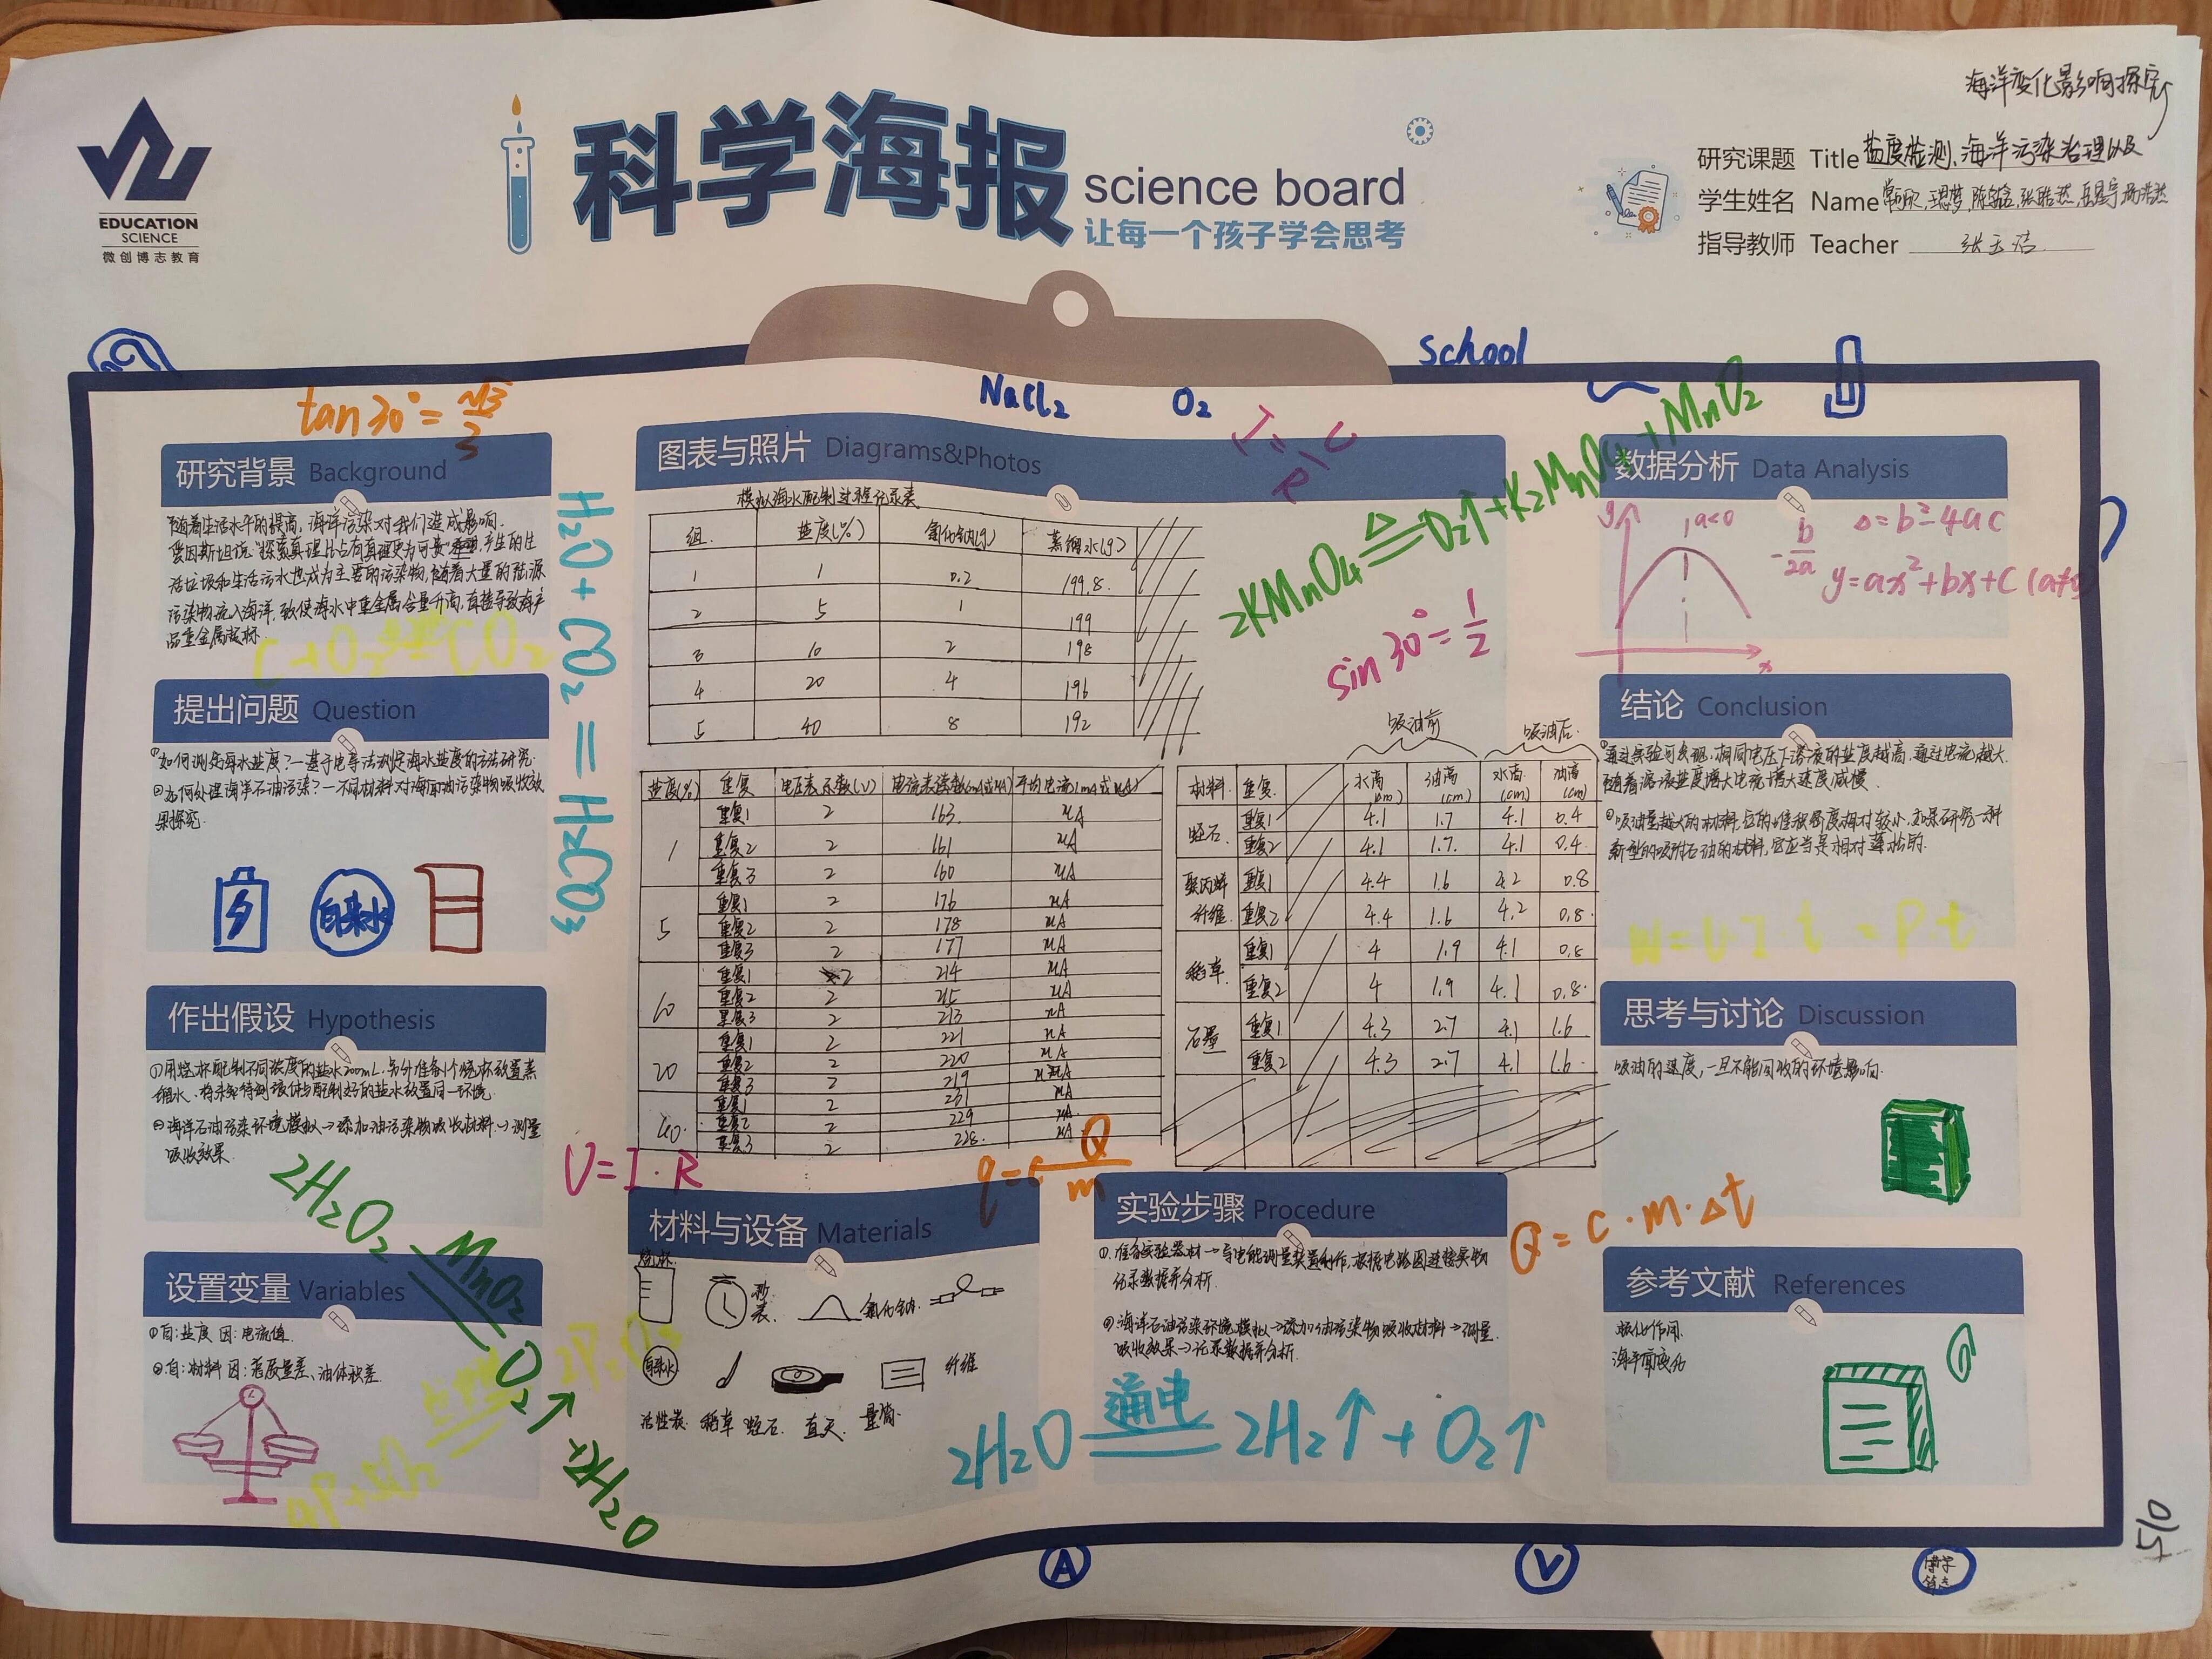 海洋变化影响探究
EDUCATION
SCIENCE
微创博志教育
科学海报
science board
让每一个孩子学会思考
研究课题 Title 盐度检测、海洋污染治理以及
学生姓名 Name
指导教师 Teacher
school
NaCl₂
O₂
tan30°=√3/3
研究背景 Background
随着生活水平的提高,海洋污染对我们造成影响.
爱因斯坦说"探索真理比占有真理更为可贵 产生的生
活垃圾和生活污水也成为主要的污染物,随着大量的陆源
污染物流入海洋,致使海水中重金属含量升高,直接导致海产
品重金属超标.
H₂O+CO₂=H₂CO₃
提出问题 Question
①如何测定海水盐度?—基于电导法测定海水盐度的方法研究.
②如何处理海洋石油污染?—不同材料对海面油污染物吸收效
果探究.
自来水
作出假设 Hypothesis
①用烧杯配制不同浓度的盐水200mL.另外准备1个烧杯放置蒸
馏水、将未知待测液体与配制好的盐水放置同一环境.
②海洋石油污染环境模拟→添加油污染物吸收材料→测量
吸收效果.
2H₂O₂ MnO₂ O₂↑+2H₂O
设置变量 Variables
①自:盐度 因:电流值.
②自:材料 因:液质量差、油体积差.
图表与照片 Diagrams&Photos
模拟海水配制过程记录表
组 盐度(%) 氯化钠(g) 蒸馏水(g)
1 1 0.2 199.8
2 5 1 199
3 10 2 198
4 20 4 196
5 40 8 192
I=U/R
2KMnO₄ △ O₂↑+K₂MnO₄+MnO₂
sin30°=1/2
盐度(%) 重复 电压表示数(V) 电流表读数(mA或μA) 平均电流(mA或μA)
1 重复1 2 163 μA
重复2 2 161 μA
重复3 2 160 μA
5 重复1 2 176 μA
重复2 2 178 μA
重复3 2 177 μA
10 重复1 2 214 μA
重复2 2 215 μA
重复3 2 213 μA
20 重复1 2 221 μA
重复2 2 220 μA
重复3 2 219 μA
40 重复1 2 231 μA
重复2 2 229 μA
重复3 2 228 μA
吸油前 吸油后
材料 重复 水高(cm) 油高(cm) 水高(cm) 油高(cm)
蛭石 重复1 4.1 1.7 4.1 0.4
重复2 4.1 1.7 4.1 0.4
聚丙烯纤维 重复1 4.4 1.6 4.2 0.8
重复2 4.4 1.6 4.2 0.8
稻草 重复1 4 1.9 4.1 0.8
重复2 4 1.9 4.1 0.8
石墨 重复1 4.3 2.7 4.1 1.6
重复2 4.3 2.7 4.1 1.6
U=I·R
Q=c·m·△t
材料与设备 Materials
烧杯
秒表
氯化钠
自来水
纤维
活性炭 稻草 蛭石 直尺 量筒
实验步骤 Procedure
①准备实验器材→导电能测量装置制作,根据电路图连接实物
记录数据并分析.
②海洋石油污染环境模拟→添加油污染物吸收材料→测量
吸收效果→记录数据并分析.
2H₂O 通电 2H₂↑+O₂↑
数据分析 Data Analysis
y
a<0
-b/2a
△=b²-4ac
y=ax²+bx+c(a≠0)
x
结论 Conclusion
①通过实验可发现,相同电压下溶液的盐度越高,通过电流越大.
随着溶液盐度增大电流增大速度减慢.
②吸油量越大的材料,它的堆积密度相对较小,如果研究一种
新型的吸附石油的材料,它应当是相对蓬松的.
W=U·I·t=P·t
思考与讨论 Discussion
吸油的速度,一旦不能回收的环境影响.
参考文献 References
海平面变化
A
V